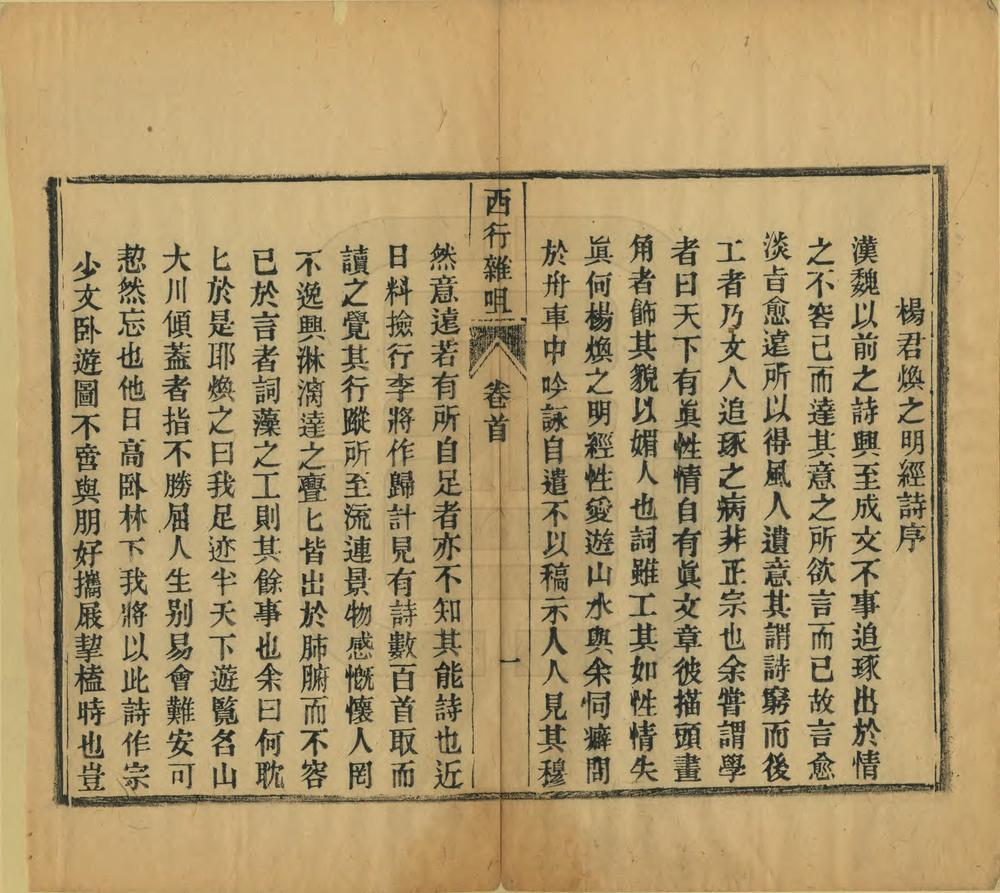 楊君煥之明經詩序
漢魏以前之詩興至成文不事追琢出於情
之不容己而達其意之所欲言而已故言愈
淡旨愈遠所以得風人遺意其謂詩窮而後
工者乃文人追琢之病非正宗也余嘗謂學
者曰天下有眞性情自有眞文章彼描頭畫
角者飾其貌以媚人也詞雖工其如性情失
眞何楊煥之明經性愛遊山水與余同癖間
於舟車中吟詠自遣不以稿示人人見其穆
西行雜咀
卷首
一
然意遠若有所自足者亦不知其能詩也近
日料撿行李將作歸計見有詩數百首取而
讀之覺其行蹤所至流連景物感慨懷人罔
不逸興淋漓達之亹匕皆出於肺腑而不容
已於言者詞藻之工則其餘事也余曰何耽
匕於是耶煥之曰我足迹半天下遊覽名山
大川傾蓋者指不勝屈人生别易會難安可
恝然忘也他日高卧林下我將以此詩作宗
少文卧遊圖不啻與朋好攜屐挈榼時也豈